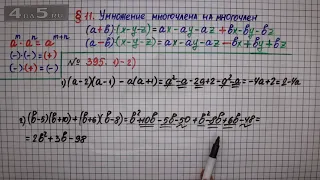 4 на 5.ru
§ 11. Умножение многочлена на многочлен
aᵐ · aⁿ = aᵐ⁺ⁿ
(a+b)(x-y-z) = ax-ay-az+bx-by-bz
(-)·(-) = (+)
(a-b)(x-y-z) = ax-ay-az-bx+by+bz
(-)·(+) = (-)
№ 395. 1)-2)
1) (a-2)(a-1) - a(a+1) = a²-a-2a+2-a²-a = -4a+2 = 2-4a
2) (b-5)(b+10) + (b+6)(b-8) = b²+10b-5b-50+b²-8b+6b-48 =
= 2b²+3b-98